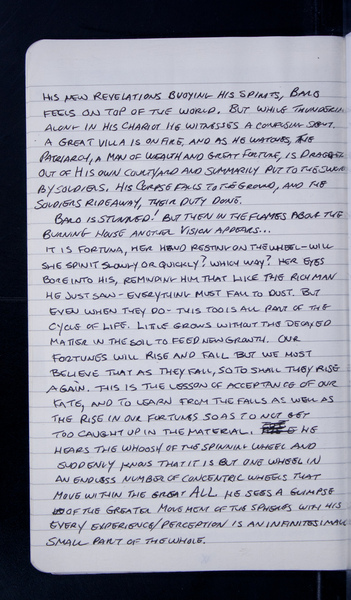 HIS NEW REVELATIONS BUOYING HIS SPIRITS, BALO
FEELS ON TOP OF THE WORLD. BUT WHILE THUNDERING
ALONG IN HIS CHARIOT HE WITNESSES A CONFUSING SIGHT.
A GREAT VILLA IS ON FIRE, AND AS HE WATCHES, THE
PATRIARCH, A MAN OF WEALTH AND GREAT FORTUNE, IS DRAGGED
OUT OF HIS OWN COURTYARD AND SUMMARILY PUT TO THE SWORD
BY SOLDIERS. HIS CORPSE FALLS TO THE GROUND, AND THE
SOLDIERS RIDE AWAY, THEIR DUTY DONE.
BALO IS STUNNED! BUT THEN IN THE FLAMES ABOVE THE
BURNING HOUSE ANOTHER VISION APPEARS...
IT IS FORTUNA, HER HAND RESTING ON THE WHEEL - WILL
SHE SPIN IT SLOWLY OR QUICKLY? WHICH WAY? HER EYES
BORE INTO HIS, REMINDING HIM THAT LIKE THE RICH MAN
HE JUST SAW - EVERYTHING MUST FALL TO DUST. BUT
EVEN WHEN THEY DO - THIS TOO IS ALL PART OF THE
CYCLE OF LIFE. LITTLE GROWS WITHOUT THE DECAYED
MATTER IN THE SOIL TO FEED NEW GROWTH. OUR
FORTUNES WILL RISE AND FALL BUT WE MOST
BELIEVE THAT AS THEY FALL, SO TO SHALL THEY RISE
AGAIN. THIS IS THE LESSON OF ACCEPTANCE OF OUR
FATE, AND TO LEARN FROM THE FALLS AS WELL AS
THE RISE IN OUR FORTUNES SO AS TO NOT GET
TOO CAUGHT UP IN THE MATERIAL. HE
HEARS THE WHOOSH OF THE SPINNING WHEEL AND
SUDDENLY KNOWS THAT IT IS BUT ONE WHEEL IN
AN ENDLESS NUMBER OF CONCENTRIC WHEELS THAT
MOVE WITHIN THE GREAT ALL. HE SEES A GLIMPSE
OF THE GREATER MOVEMENT OF THE SPHERES WITH HIS
EVERY EXPERIENCE/PERCEPTION IS AN INFINITESIMALL
SMALL PART OF THE WHOLE.